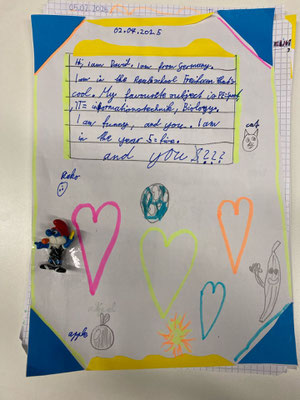 05.02.2026
02.04.2025
Hi, I am David, I am from Germany.
I am in the Realschool that's
cool. My favourite subject is PE=sport,
IT= informationstechnik, Biology.
I am funny, and you. I am
in the year
and you
cat
Robo
apple